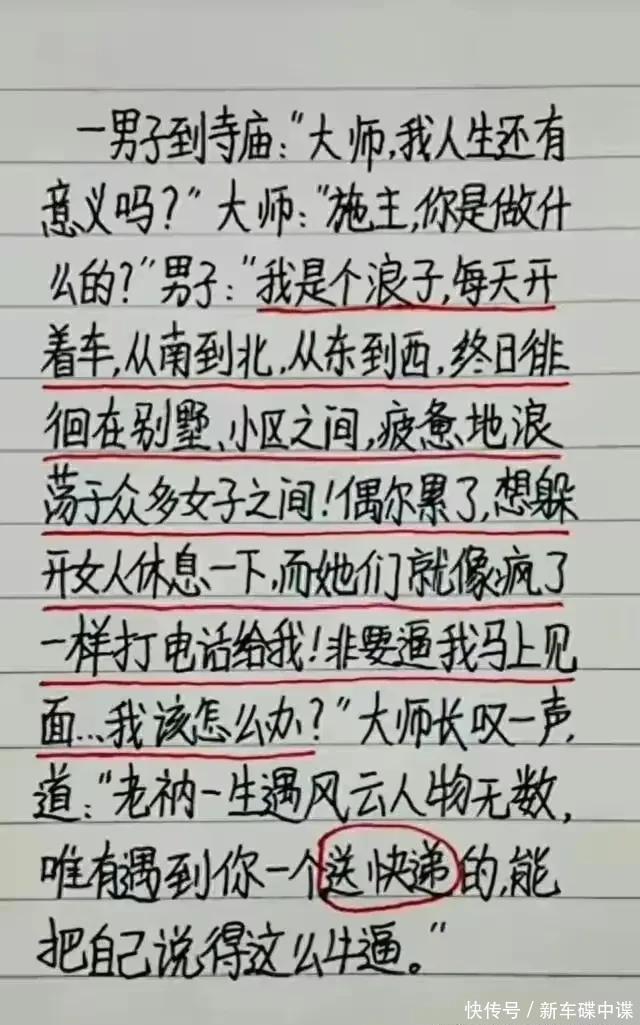 一男子到寺庙:“大师,我人生还有
意义吗?”大师:“施主,你是做什
么的?”男子:“我是个浪子,每天开
着车,从南到北,从东到西,终日徘
徊在别墅、小区之间,疲惫地浪
荡于众多女子之间!偶尔累了,想躲
开女人休息一下,而她们就像疯了
一样打电话给我!非要逼我马上见
面...我该怎么办?”大师长叹一声,
道:“老衲一生遇风云人物无数,
唯有遇到你一个送快递的,能
把自己说得这么牛逼。”
快传号/新车碟中谍